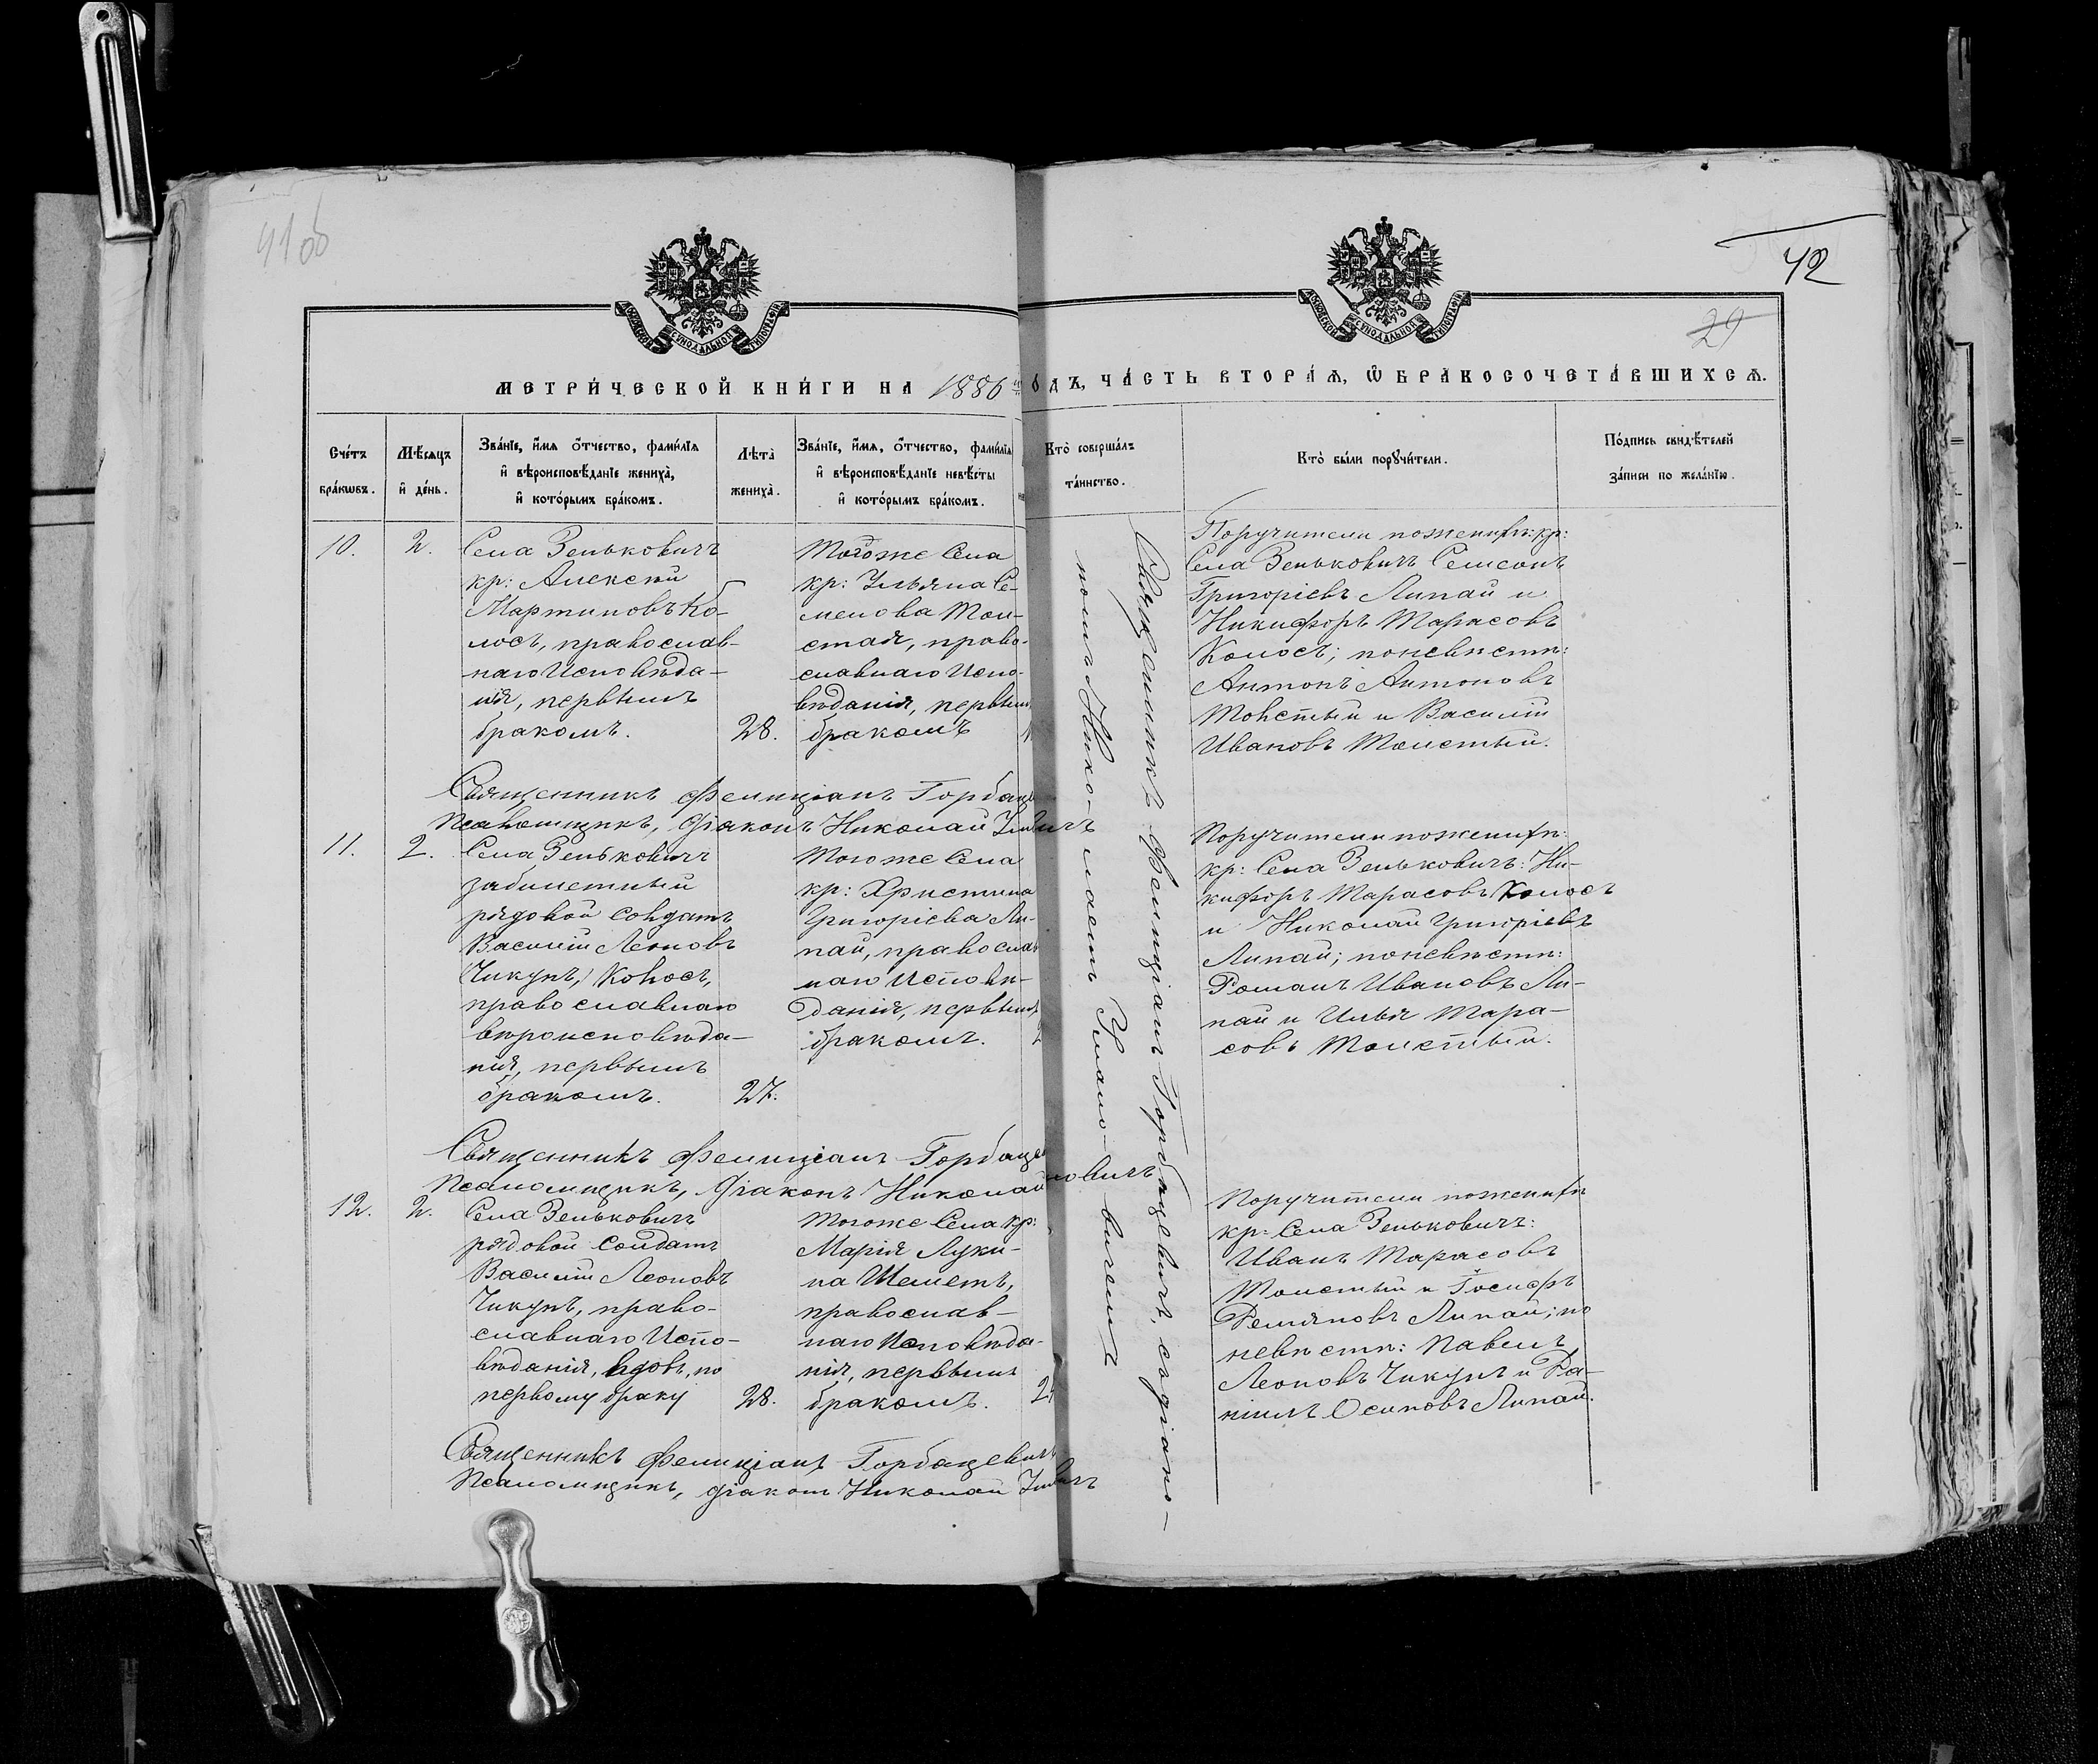 41об
42
29
МОСКОВСКОЙ СУНОДАЛЬНОЙ ТИПОГРАФІИ
МОСКОВСКОЙ СУНОДАЛЬНОЙ ТИПОГРАФІИ
МЕТРИ́ЧЕСКОЙ КНИ́ГИ НА 1886 й
ОДЪ, ЧА́СТЬ ВТОРА́Ѧ, Ѽ БРАКОСОЧЕТА́ВШИХСѦ.
Сче́тъ бра́кѡвъ.
Мѣ́сѧцъ и҆ де́нь.
Зва́нїе, и҆́мѧ ѻ҆́тчество, фами́лїѧ
и҆ вѣроисповѣ́данїе жениха̀,
и҆ кото́рымъ бра́комъ.
Лѣта̀ жениха̀.
Зва́нїе, и҆́мѧ, ѻ҆́тчество, фами́лїѧ
и҆ вѣроисповѣ́данїе невѣ́сты
и҆ кото́рымъ бра́комъ.
Кто̀ соверша́лъ
та́инство.
Кто̀ бы́ли порꙋчи́тели.
По́дпись свидѣ́телей
за́писи по жела́нїю.
10.
2.
Села Зеньковичъ
кр: Алексѣй
Мартиновъ Ко-
лосъ, православ-
наго Исповѣда-
нія, первымъ
бракомъ.
28.
Тогоже Села
кр: Ульяна Се-
менова Тол-
стая, право-
славнаго Испо-
вѣданія, первым
бракомъ
Поручители по женихѣ: кр:
Села Зеньковичъ Семенъ
Григорієвъ Липай и
Никифоръ Тарасовъ
Колосъ; по невѣстѣ:
Антонъ Антоновъ
Толстый и Василій
Ивановъ Толстый.
Священникъ Фелиціанъ Горбаце
Псаломщикъ, діаконъ Николай
11.
2.
Села Зеньковичъ
забилетный
рядовой солдатъ
Василій Леоновъ
(Чикунъ) Колосъ,
православнаго
вѣроисповѣда-
нія, первымъ
бракомъ.
27.
Тогоже Села
кр: Христина
Григорієва Ли-
пай, православ
наго Исповѣ-
данія, первымъ
бракомъ.
2
Поручители по женихѣ:
кр: Села Зеньковичъ: Ни-
кифоръ Тарасовъ Колосъ
и Николай Григорієвъ
Липай; по невѣстѣ:
Романъ Ивановъ Ли-
пай и Илья Тара-
совъ Толстый.
Священникъ Фелиціанъ Горбаце
Псаломщикъ, діаконъ Николай
12.
2.
Села Зеньковичъ
рядовой солдатъ
Василій Леоновъ
Чикунъ, право-
славнаго Испо-
вѣданія, вдовъ, по
первому браку
28.
Тогоже Села кр:
Марія Луки-
на Шеметъ,
православ-
наго Исповѣда-
нія, первымъ
бракомъ.
2
Поручители по женихѣ
кр: Села Зеньковичъ:
Иванъ Тарасовъ
Толстый и Іосифъ
Демяновъ Липай; по
невѣстѣ: Павелъ
Леоновъ Чикунъ и Да-
ніилъ Осиповъ Липай.
Священникъ Фелиціанъ Горбацевичъ
Псаломщикъ, діаконъ Николай
Священникъ Фелиціанъ Горбацевичъ, съ діако-
номъ Нико-лаемъ